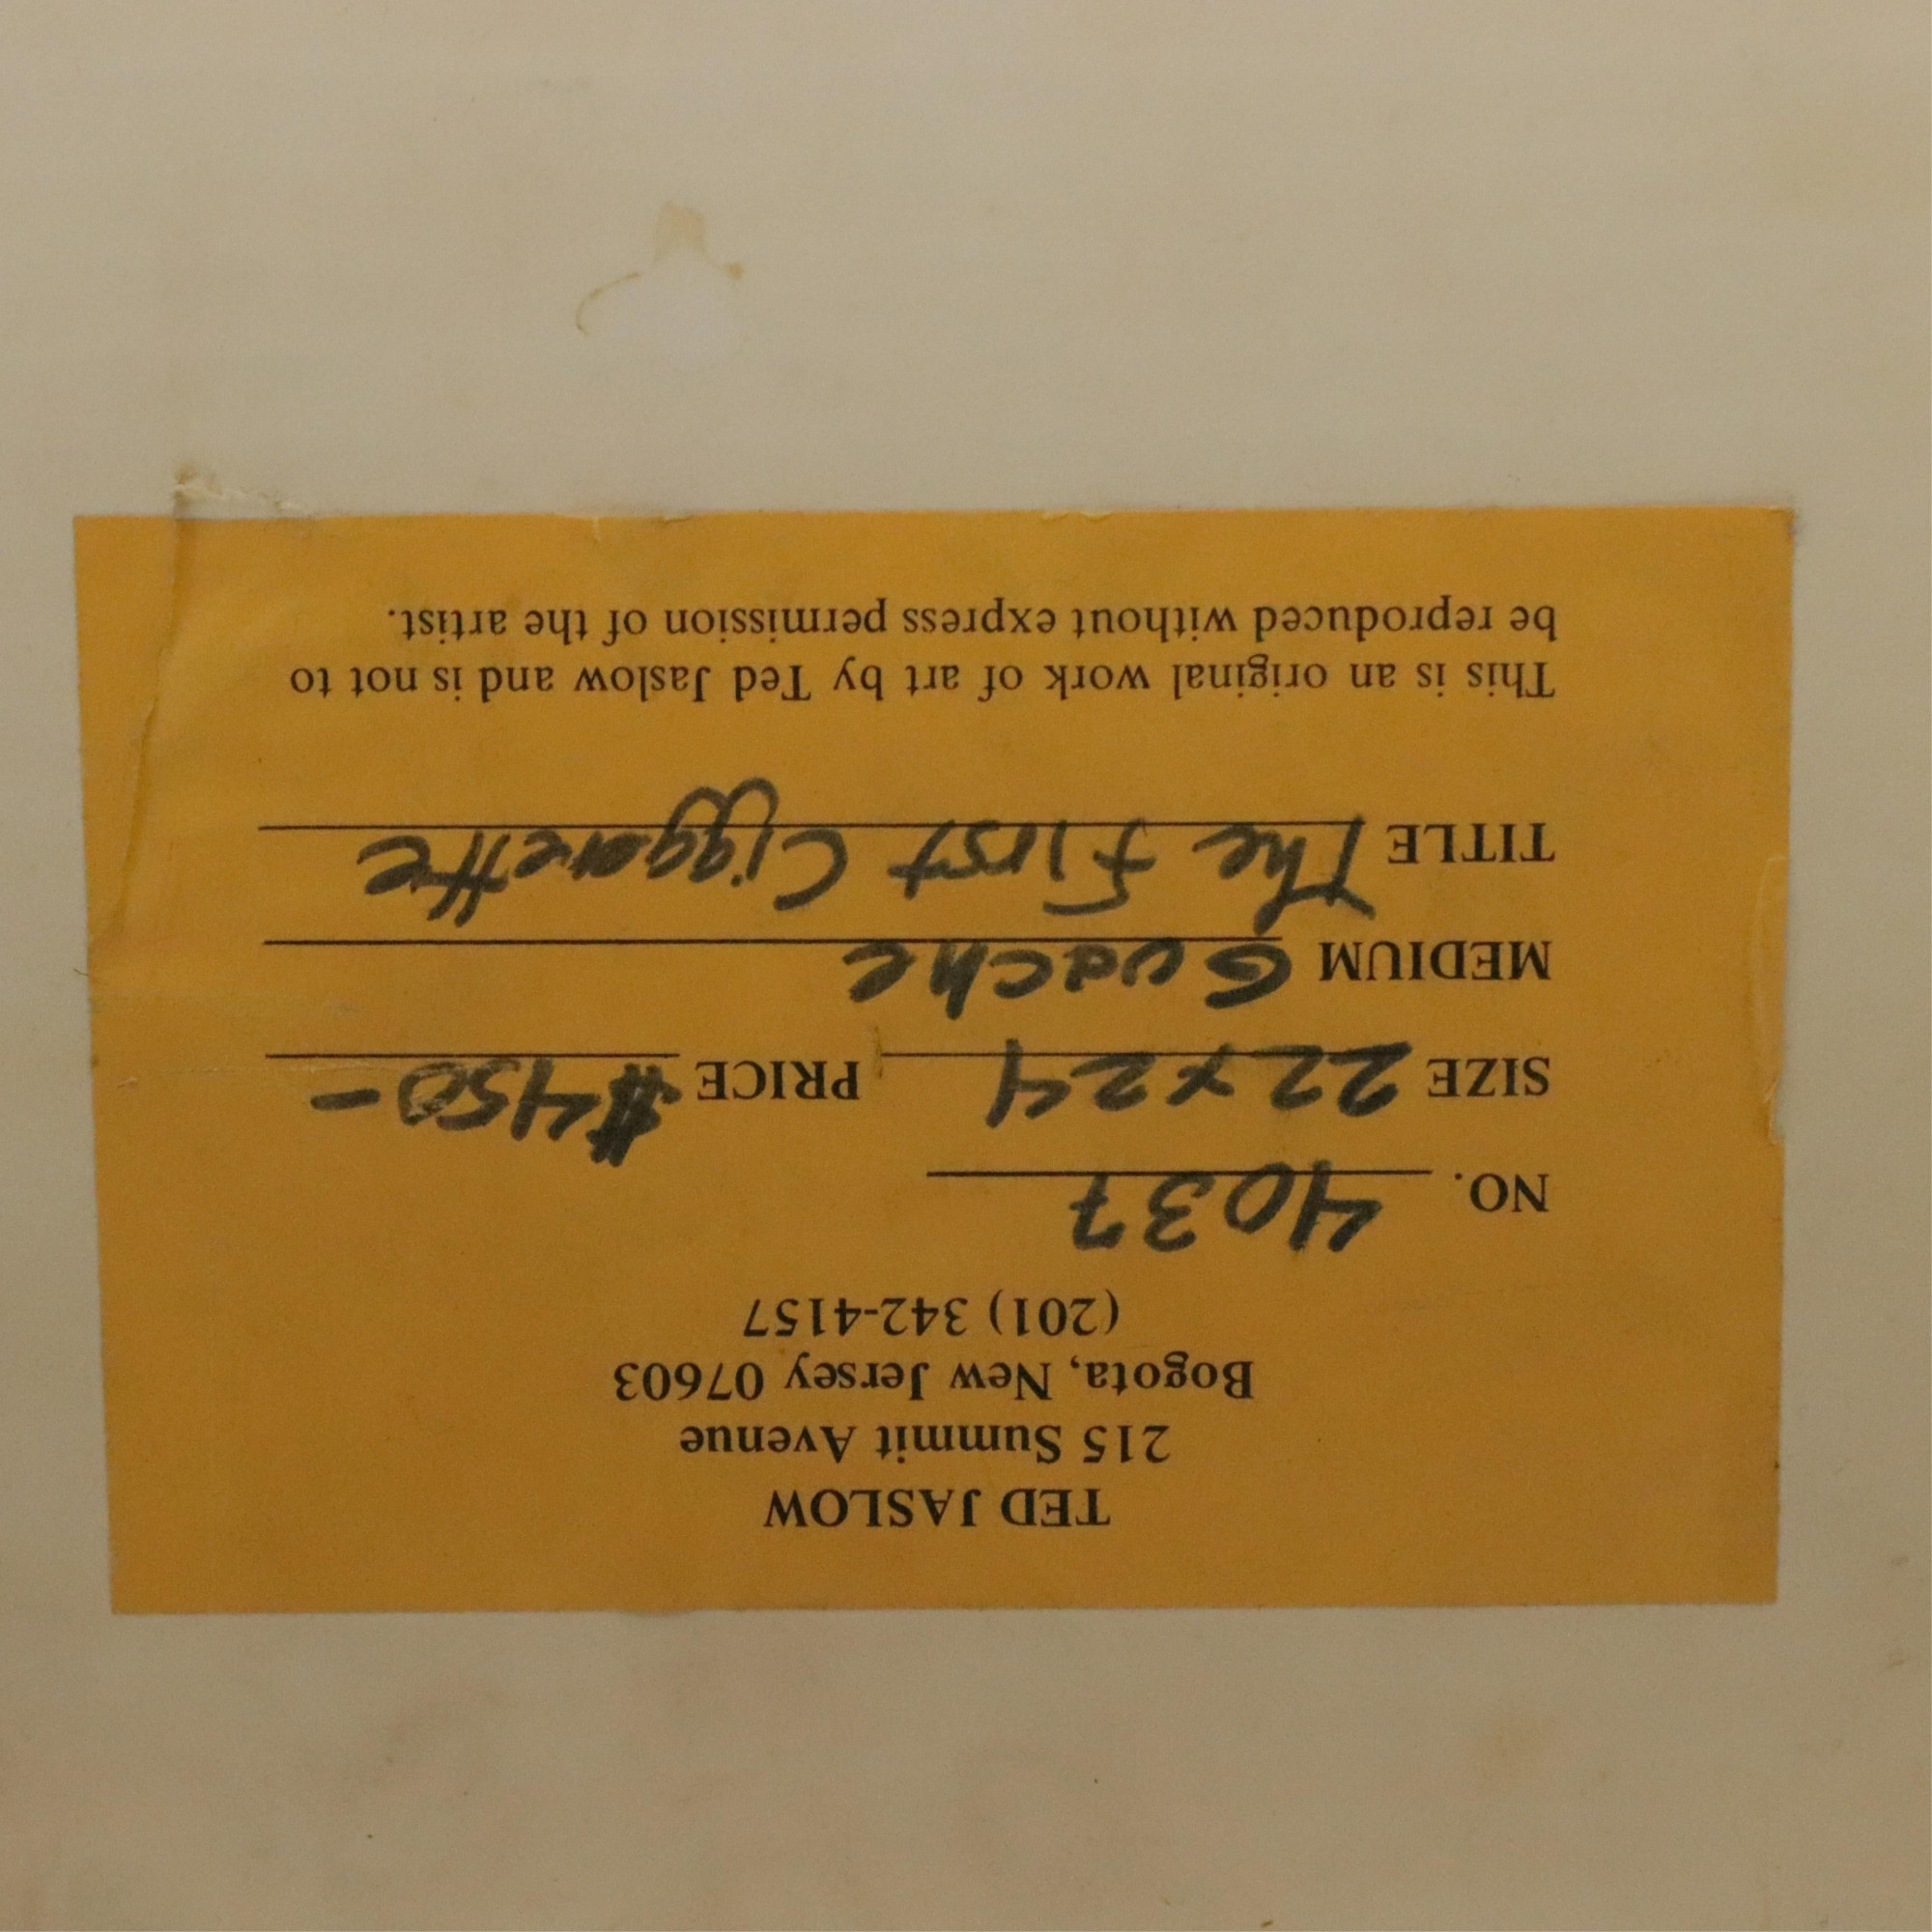 TED JASLOW
215 Summit Avenue
Bogota, New Jersey 07603
(201) 342-4157
NO. 4037
SIZE 22 x 24 PRICE $450-
MEDIUM Guache
TITLE The First Ciggarette
This is an original work of art by Ted Jaslow and is not to
be reproduced without express permission of the artist.